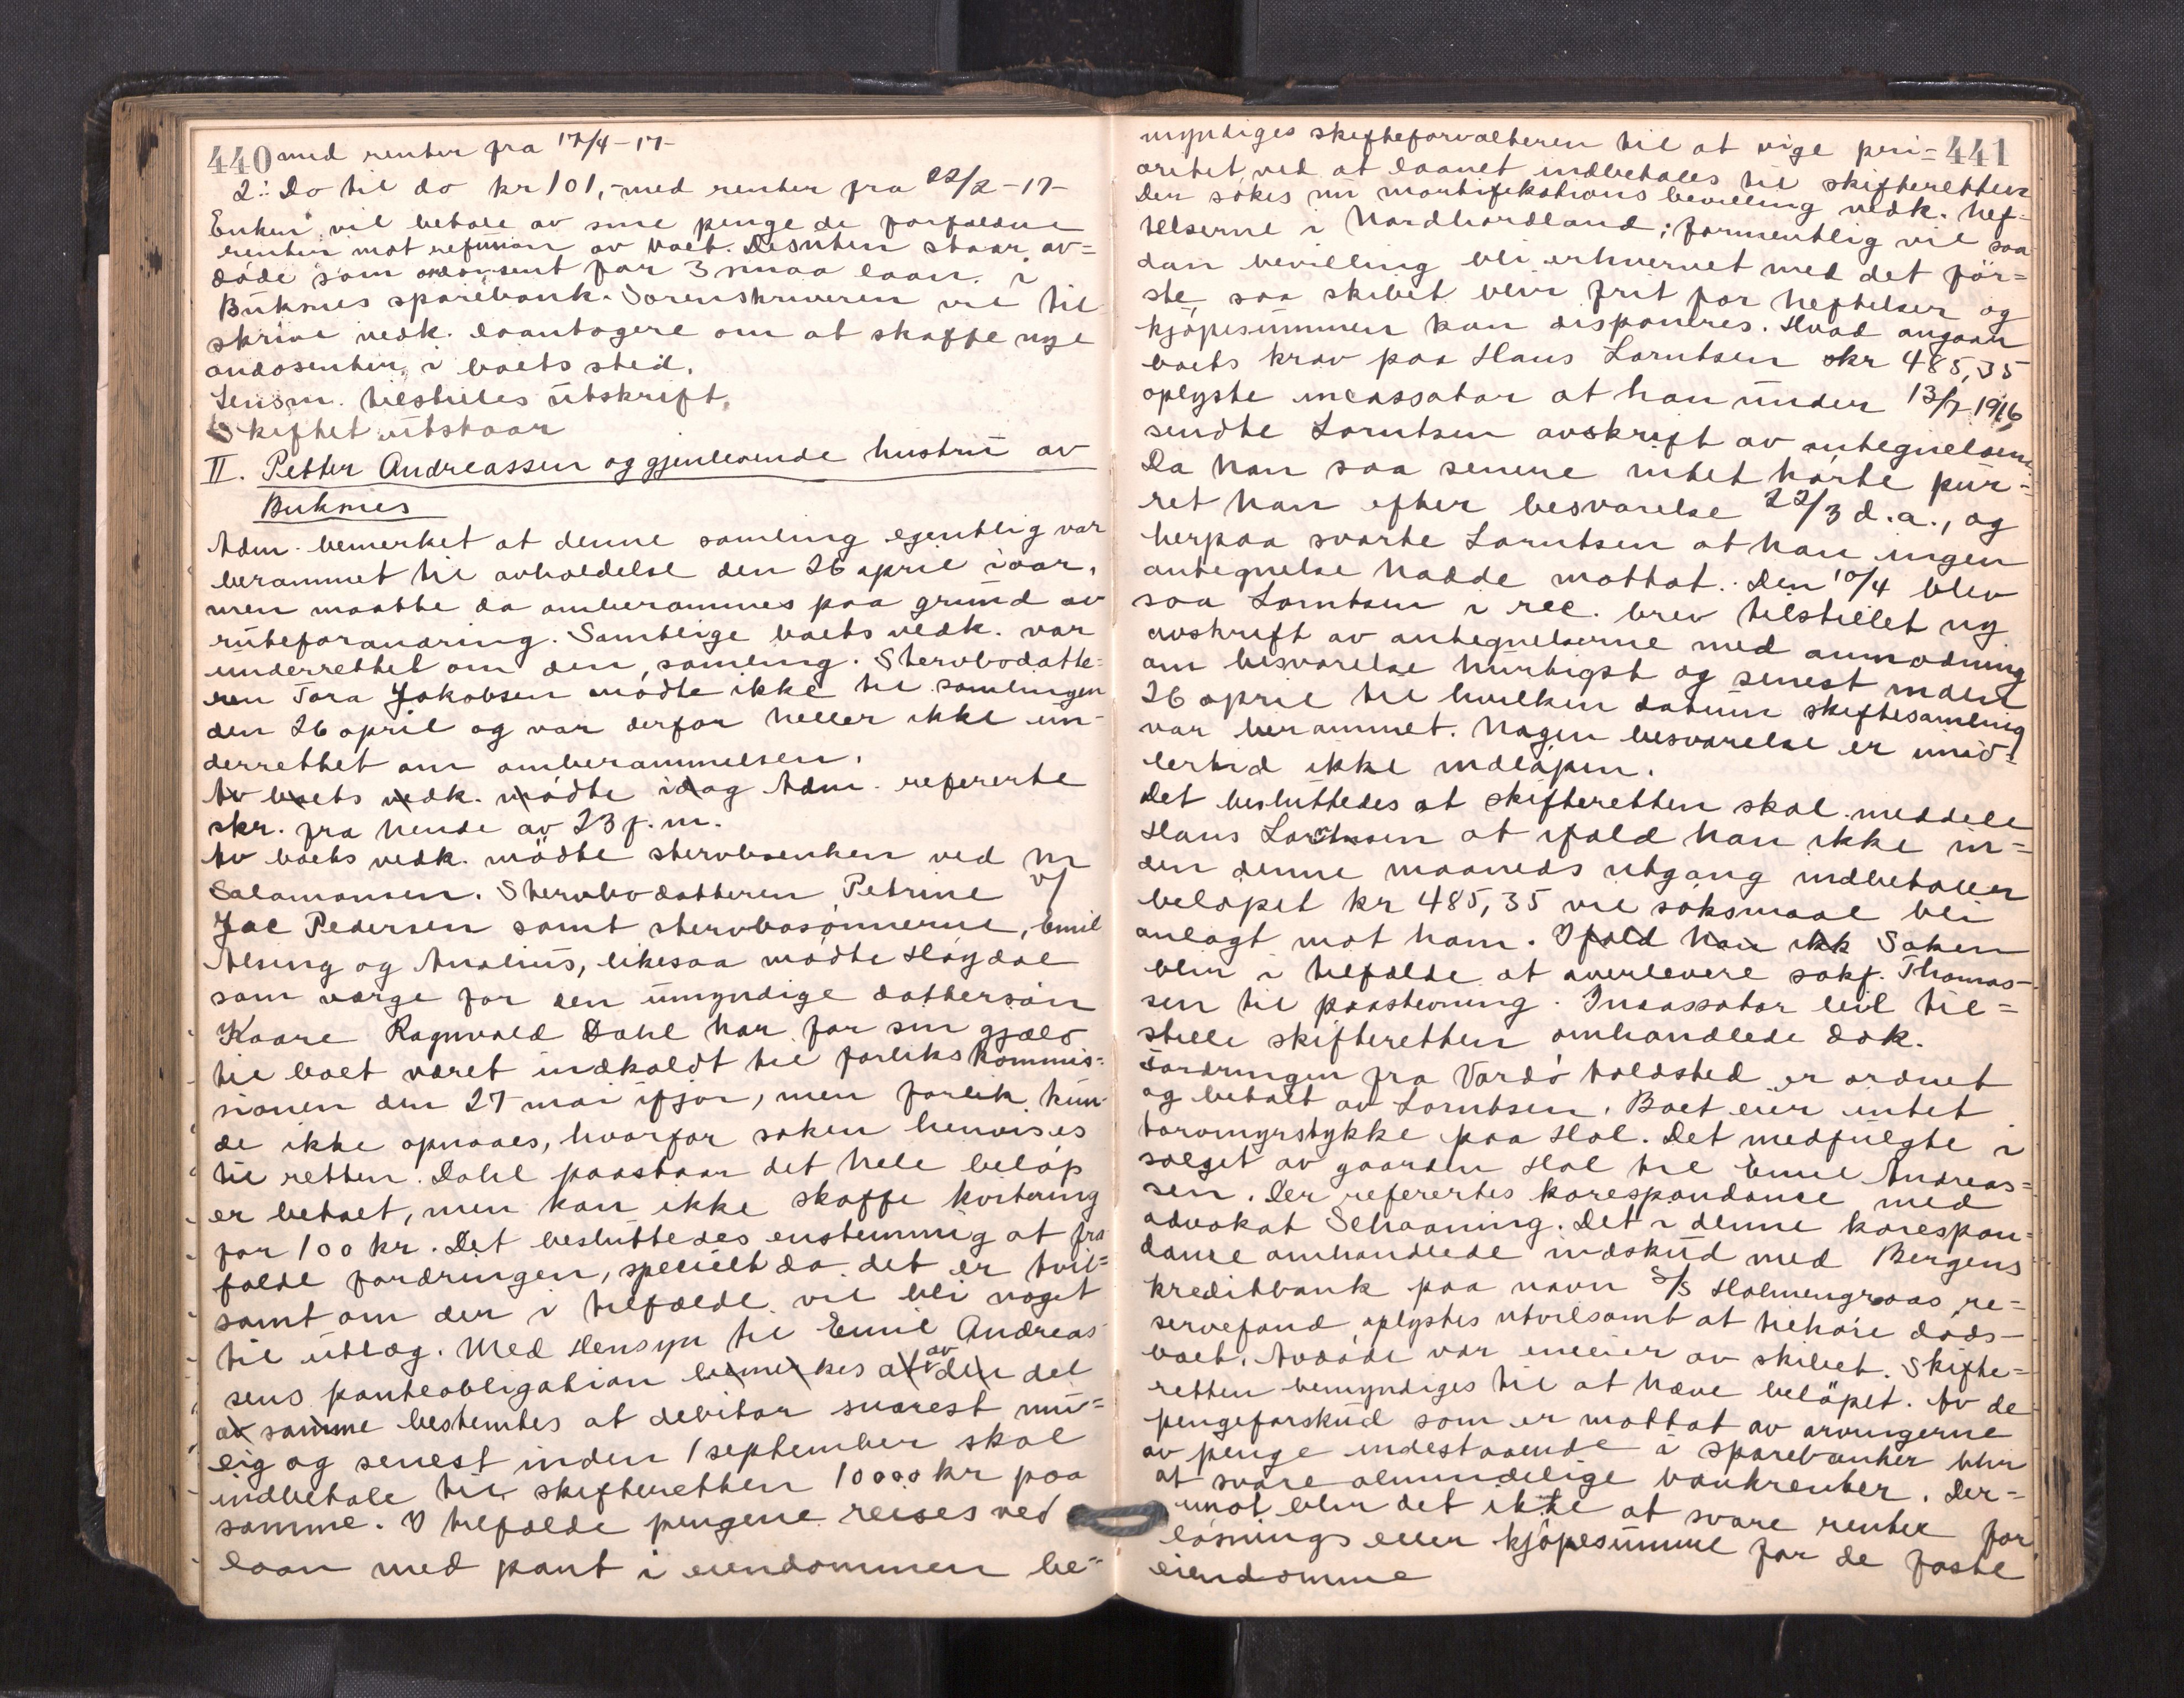 440 med renter fra 17/4-17-
2: Do til do kr 101,- med renter fra 22/2-17-
Enken vil betale av sine penge de forfaldne
renter mot refusion av boet. Desuten staar av=
døde som endossent for 3 smaa laan i
Buksnes sparebank. Sorenskriveren vil til
skrive vedk. laantagere om at skaffe nye
endosenter i boets sted.
Lensm. tilstilles utskrift.
Skiftet utstaar
II. Petter Andreassen og gjenlevende hustru av
Buksnes
Adm. bemerket at denne samling egentlig var
berammet til avholdelse den 26 april iaar,
men maatte da omberammes paa grund av
ruteforandring. Samtlige boets vedk. var
underrettet om den samling. Stervbodatte=
ren Tora Jakobsen mødte ikke til samlingen
den 26 april og var derfor heller ikke un-
derrettet om omberammelsen.
Av boets vedk. mødte idag Adm. refererte
skr. fra hende av 23 f.m.
Av boets vedk. mødte stervboenken ved M
Salamonsen. Stervbodatteren Petrine v/
Jac Pedersen samt stervbosønnerne, Emil
Alsing og Analius, likesaa mødte Høgdal
som værge for den umyndige dattersøn
Kaare Ragnvald Dahl har for sin gjæld
til boet været indkaldt til forlikskommis=
sionen den 27 mai ifjor, men forlik kun-
de ikke opnaaes, hvorfor saken henvises
til retten. Dahl paastaar det hele beløp
er betalt, men kan ikke skaffe kvitering
for 100 kr. Det besluttedes enstemmig at fra
falde fordringen, specielt da det er tvil=
somt om der i tilfælde vil bli noget
til utlæg. Med Hensyn til Emil Andreas
sens panteobligation bemerkes at av den del
av samme bestemtes at debitor snarest mu=
lig og senest inden 1 september skal
indbetale til skifteretten 10000 kr paa
samme. I tilfælde pengene reises ved
laan med pant i eiendommen be=
myndiges skifteforvalteren til at vige pri= 441
oritet ved at laanet indbetales til skifteretten
Der søkes nu mortifikations bevilling vedk. hef-
telserne i Nordhordland; formentlig vil saa
dan bevilling bli erhvervet med det før=
ste saa skibet blir frit for heftelser og
kjøpesummen kan disponeres. Hvad angaar
boets krav paa Hans Lorntsen skr 485,35
oplyste incassator at han under 13/7 1916
sendte Lorntsen avskrift av antegnelsene.
Da han saa senere intet hørte pur=
ret han efter besvarelse 22/3 d.a., og
herpaa svarte Lorntsen at han ingen
antegnelse hadde mottat. Den 10/4 blev
saa Lorntsen i rec. brev tilstillet ny
avskrift av antegnelserne med anmodning
om besvarelse hurtigst og senest inden
26 april til hvilken datum skiftesamling
var berammet. Nogen besvarelse er imid=
lertid ikke indløpen.
Det besluttedes at skifteretten skal meddele
Hans Lorntsen at ifald han ikke in=
den denne maaneds utgang indbetaler
beløpet kr 485,35 vil søksmaal bli
anlagt mot ham. Ifald han ikk Saken
blir i tilfælde at overlevere sakf. Thomas-
sen til paastevning. Incassator vil til=
stille skifteretten omhandlede dok.
Fordringen fra Vardø toldsted er ordnet
og betalt av Lorntsen. Boet eier intet
torvmyrstykke paa Hol. Det medfulgte i
salget av gaarden Hol til Emil Andreas=
sen. Der refereres korespondance med
advokat Schaaning. Det i denne korespon=
dance omhandlede indskud med Bergens
kreditbank paa navn S/S Holmengraas re=
servefond oplystes utvilsomt at tilhøre døds-
boet. Avdøde var eneeier av skibet. Skifte=
retten bemyndiges til at hæve beløpet. Av de
pengeforskud som er mottat av arvingerne
av penge indestaaende i sparebanker blir
at svare almindelige bankrenter. Der=
imot blir det ikke at svare renter for
løsnings eller kjøpesumme for de faste
eiendomme